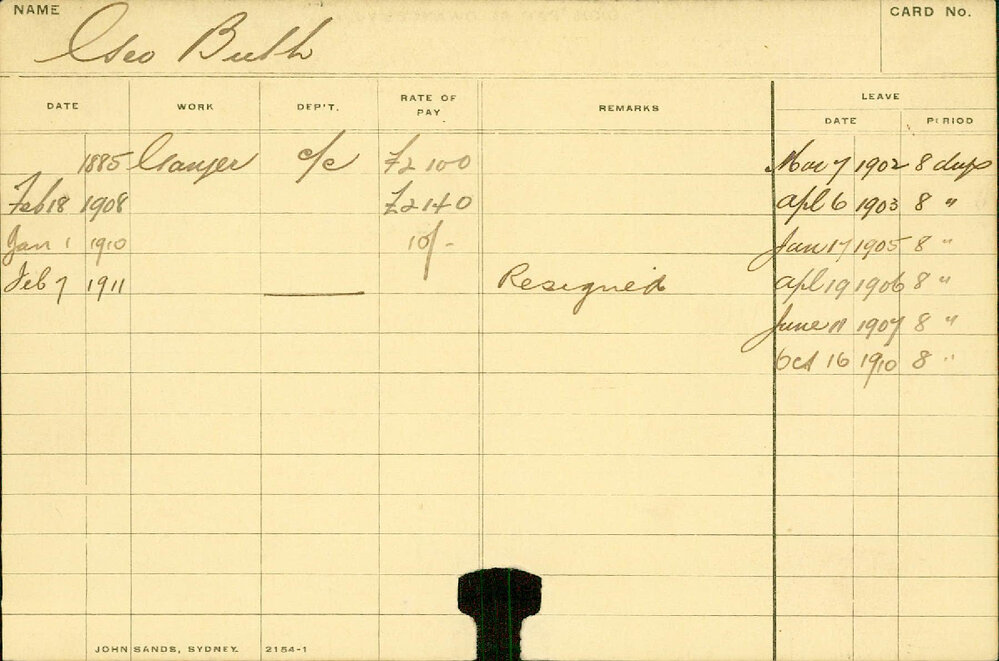 NAME
CARD No.
Geo Buth
DATE WORK DEP'T. RATE OF PAY REMARKS LEAVE
DATE PERIOD
1885 Ganger c/c £2 10 0 Mar 7 1902 8 days
Feb 18 1908 £2 14 0 Apl 6 1903 8 "
Jan 1 1910 10/- Jan 17 1905 8 "
Feb 7 1911 Resigned Apl 19 1906 8 "
June 11 1907 8 "
Oct 16 1910 8 "
JOHN SANDS, SYDNEY. 2154-1